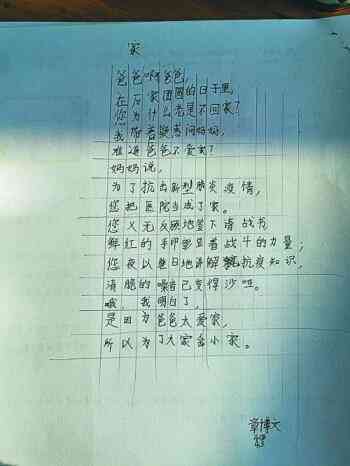 家
爸爸啊爸爸,
在万家团圆的日子里,
您为什么老是不回家?
我带着疑惑问妈妈,
难道爸爸不爱家?
妈妈说,
为了抗击新型肺炎疫情,
您把医院当成了家。
您义无反顾地签下请战书
鲜红的手印彰显着战斗的力量;
您夜以继日地讲解抗疫知识,
清脆的嗓音已变得沙哑。
哦,我明白了,
是因为爸爸太爱家,
所以为了大家舍小家。
章博文